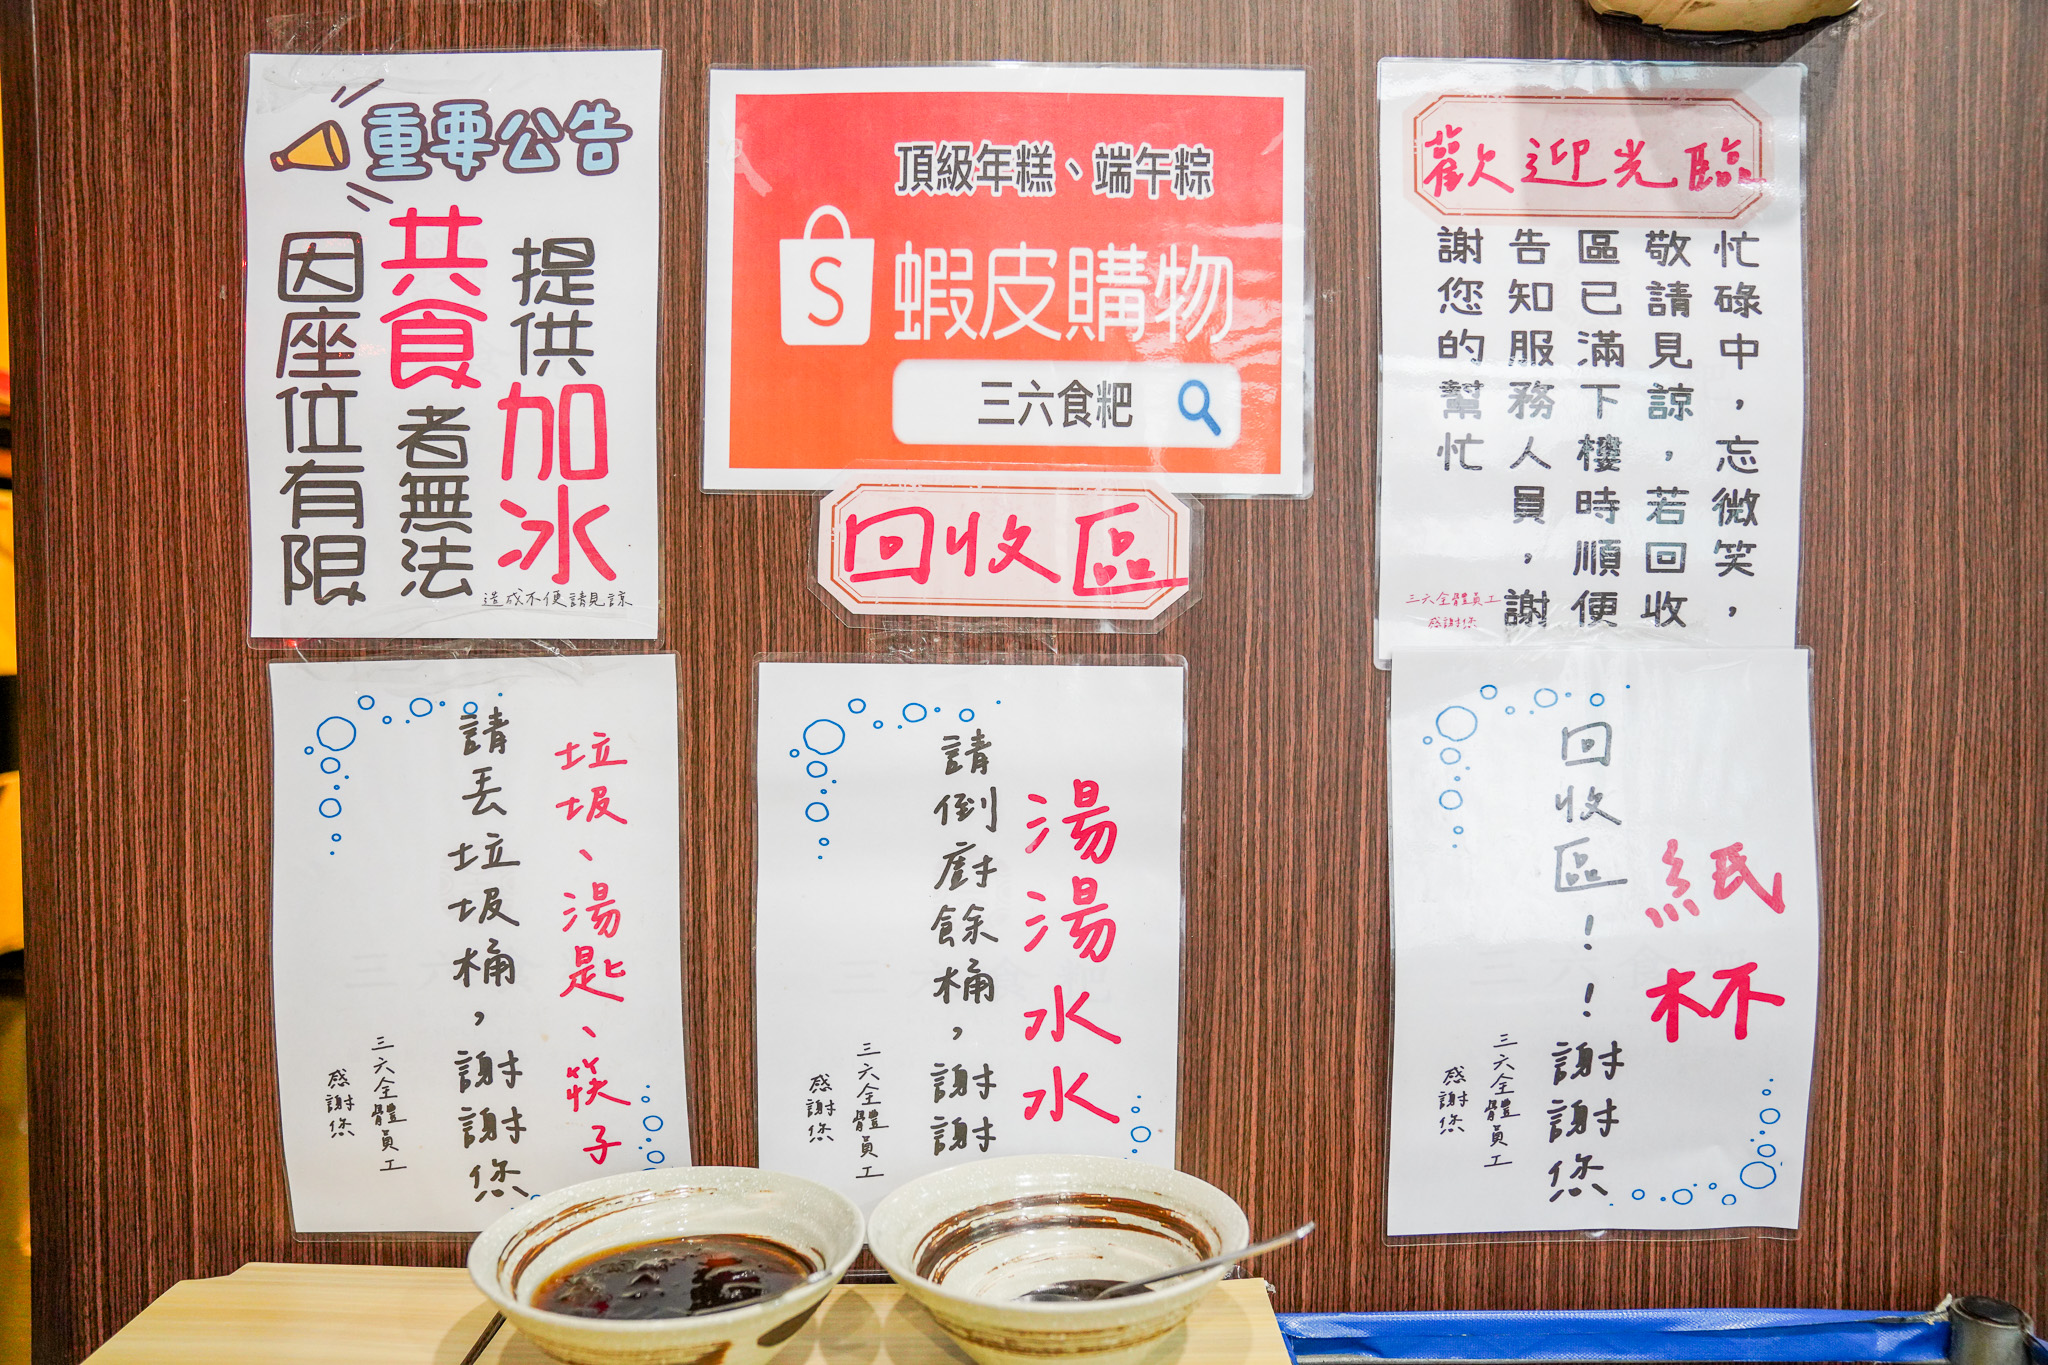 重要公告
因座位有限
共食者無法
提供加冰
造成不便請見諒
頂級年糕、端午粽
S
蝦皮購物
三六食粑
回收區
歡迎光臨
忙碌中，忘微笑，
敬請見諒，若回收
區已滿下樓時順便
告知服務人員，謝
謝您的幫忙
三六全體員工
感謝您
垃圾、湯匙、筷子
請丟垃圾桶，謝謝您
三六全體員工
感謝您
湯湯水水
請倒廚餘桶，謝謝
三六全體員工
感謝您
紙杯
回收區！！謝謝您
三六全體員工
感謝您